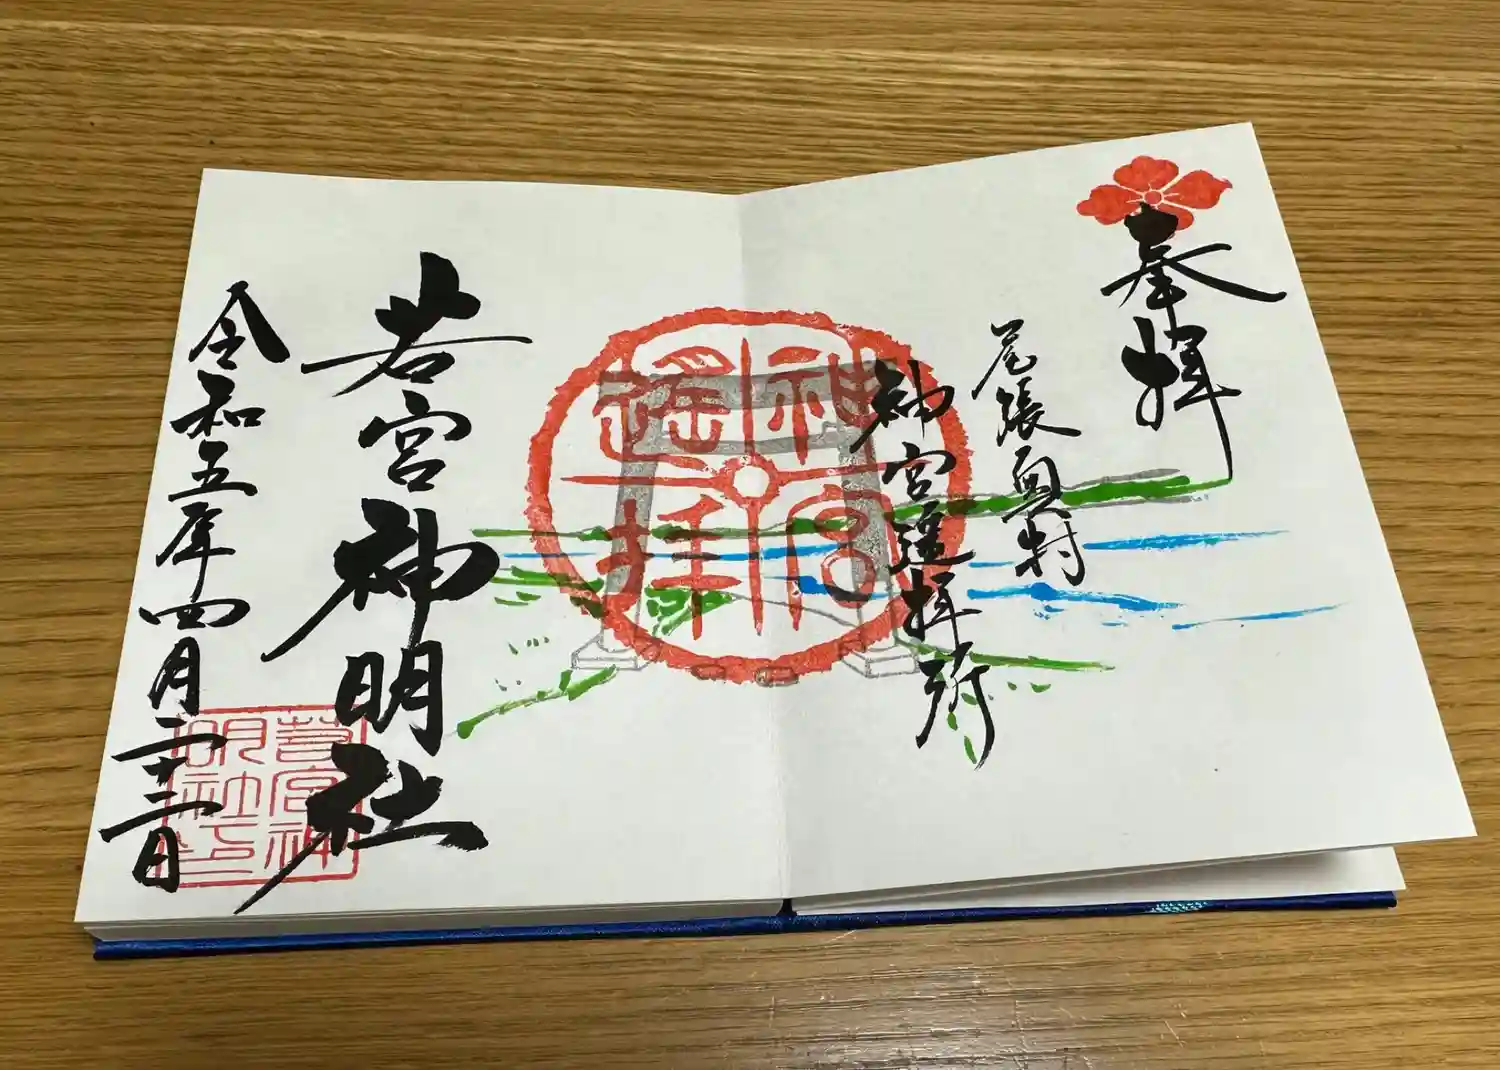 奉拝
尾張奥村
神宮遥拝所
神宮
遥拝
若宮神明社
若宮神
明社印
令和五年四月二十二日